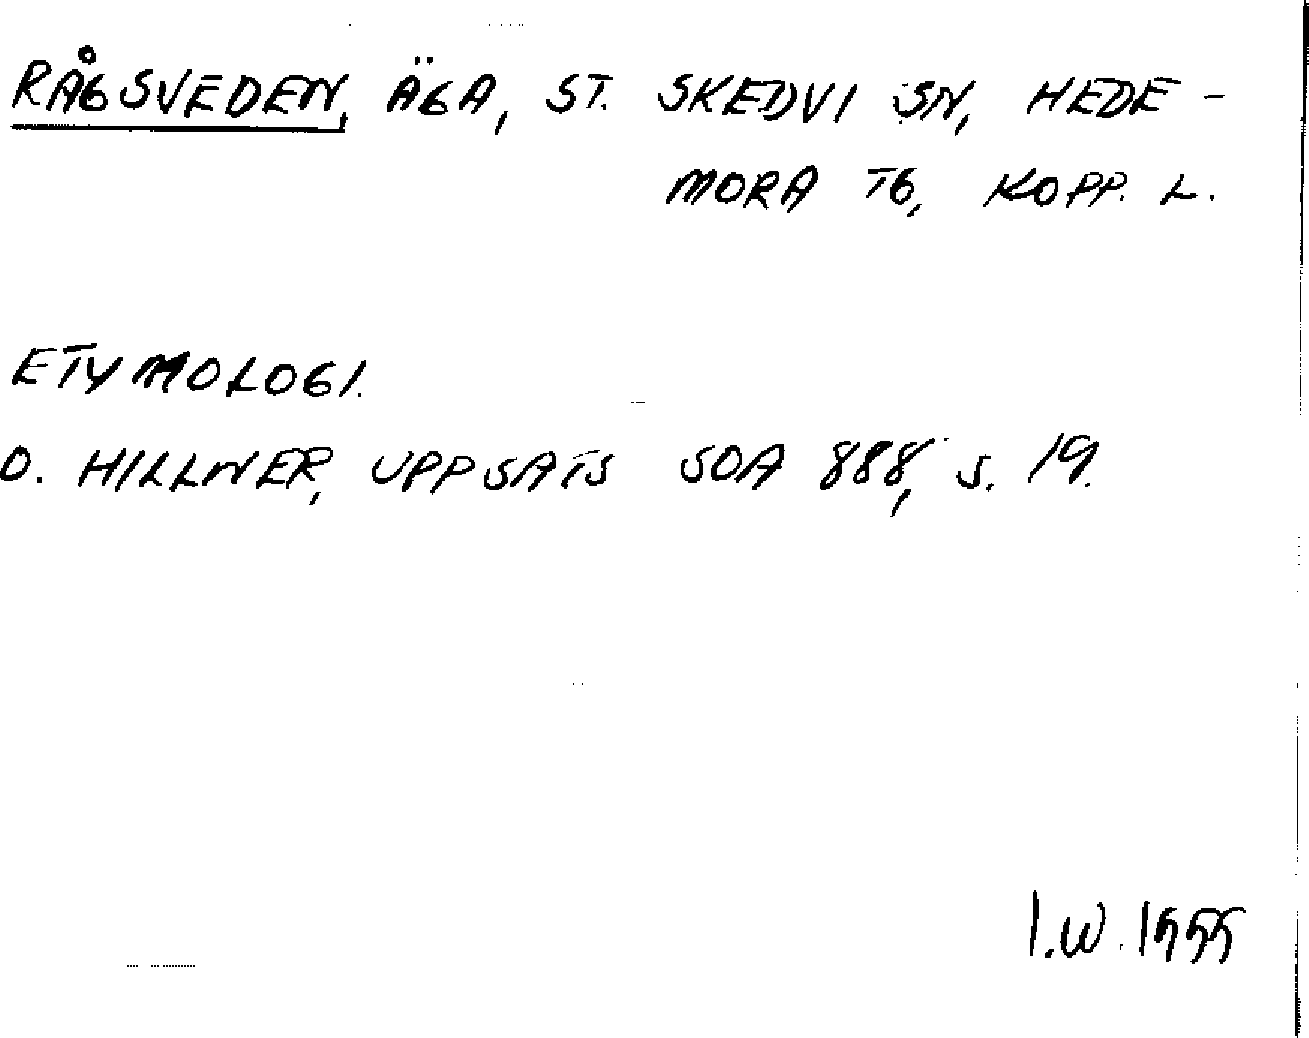 RÅGSVEDEN, ÄGA, ST. SKEDVI SN, HEDE-
MORA TG, KOPP. L.
ETYMOLOGI.
O. HILLNER, UPPSATS SOA 888, S. 19.
I.W. 1955